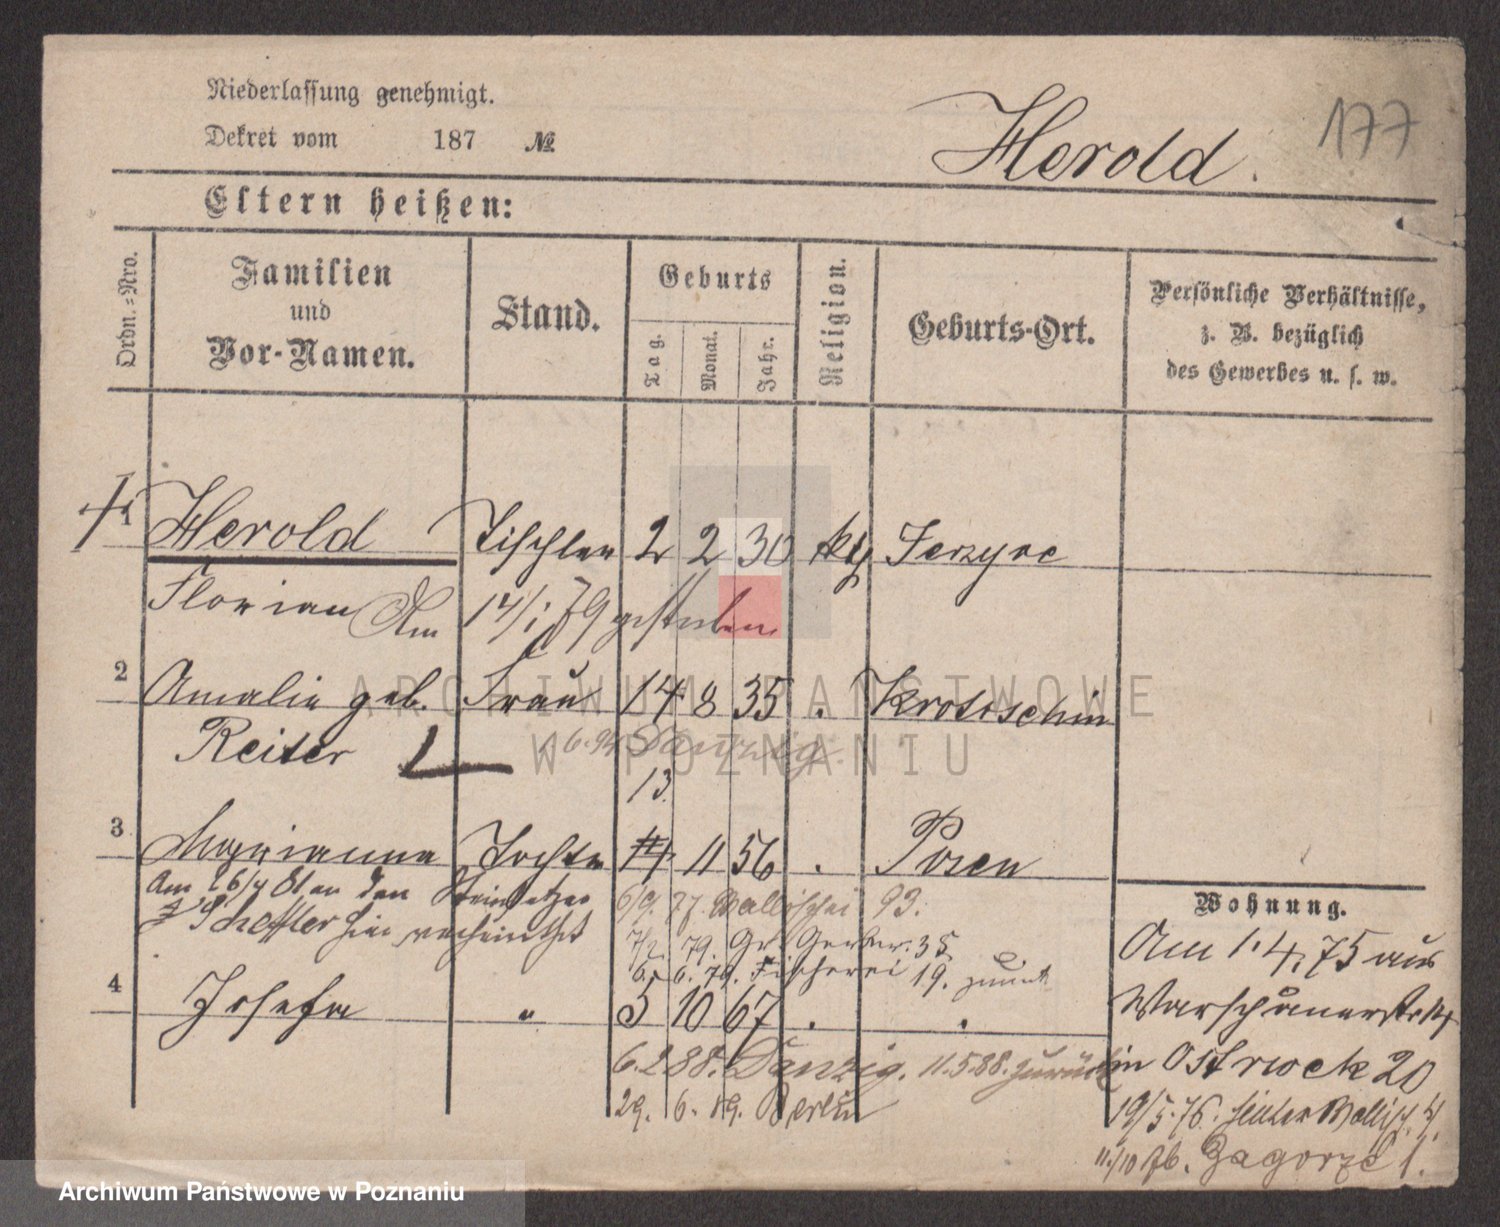 Niederlassung genehmigt.
Dekret vom 187 №
Herold.
177
Eltern heißen:
Ordn.=Nro.
Familien
und
Vor-Namen.
Stand.
Geburts
Tag.
Monat.
Jahr.
Religion.
Geburts-Ort.
Persönliche Verhältnisse,
z. B. bezüglich
des Gewerbes u. s. w.
1 Herold Tischler 2 2 30 kth Jerzyce
Florian Am 14/1 79 gestorben
2 Amalie geb. Frau 14 8 35 . Krotoschin
Reiter 6.94 Danzig
13
3 Maryianna Tochter 14 11 56 . Posen
Am 26/4 81 an den Steinsetzer
Scheffler hier verheirathet
6/9. 77. Wallischei 93.
7/2. 79. Gr. Gerber. 35
6. 6. 79. Fischerei 19. zurück
4 Josefa " 5 10 67 . .
6.2.88. Danzig. 11.5.88. zurück
29. 6. 89. Berlin
Wohnung.
Am 1.4.75 aus
Warschauerstr
in Ostrowek 20
19/5.76. hinter Wallisch. 4.
11/10 76. Zagorze 1.
ARCHIWUM PAŃSTWOWE
W POZNANIU
Archiwum Państwowe w Poznaniu